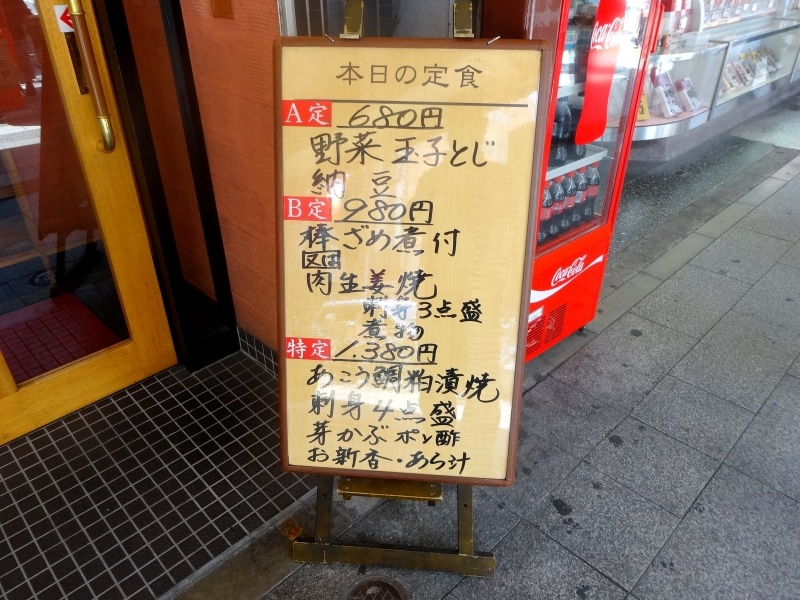 本日の定食
A定 680円
野菜玉子とじ
納豆
B定 980円
棒ざめ煮付
又は
肉生姜焼
刺身3点盛
煮物
特定 1.380円
あこう鯛粕漬焼
刺身4点盛
芽かぶポン酢
お新香・あら汁
Coca-Cola
Coca-Cola